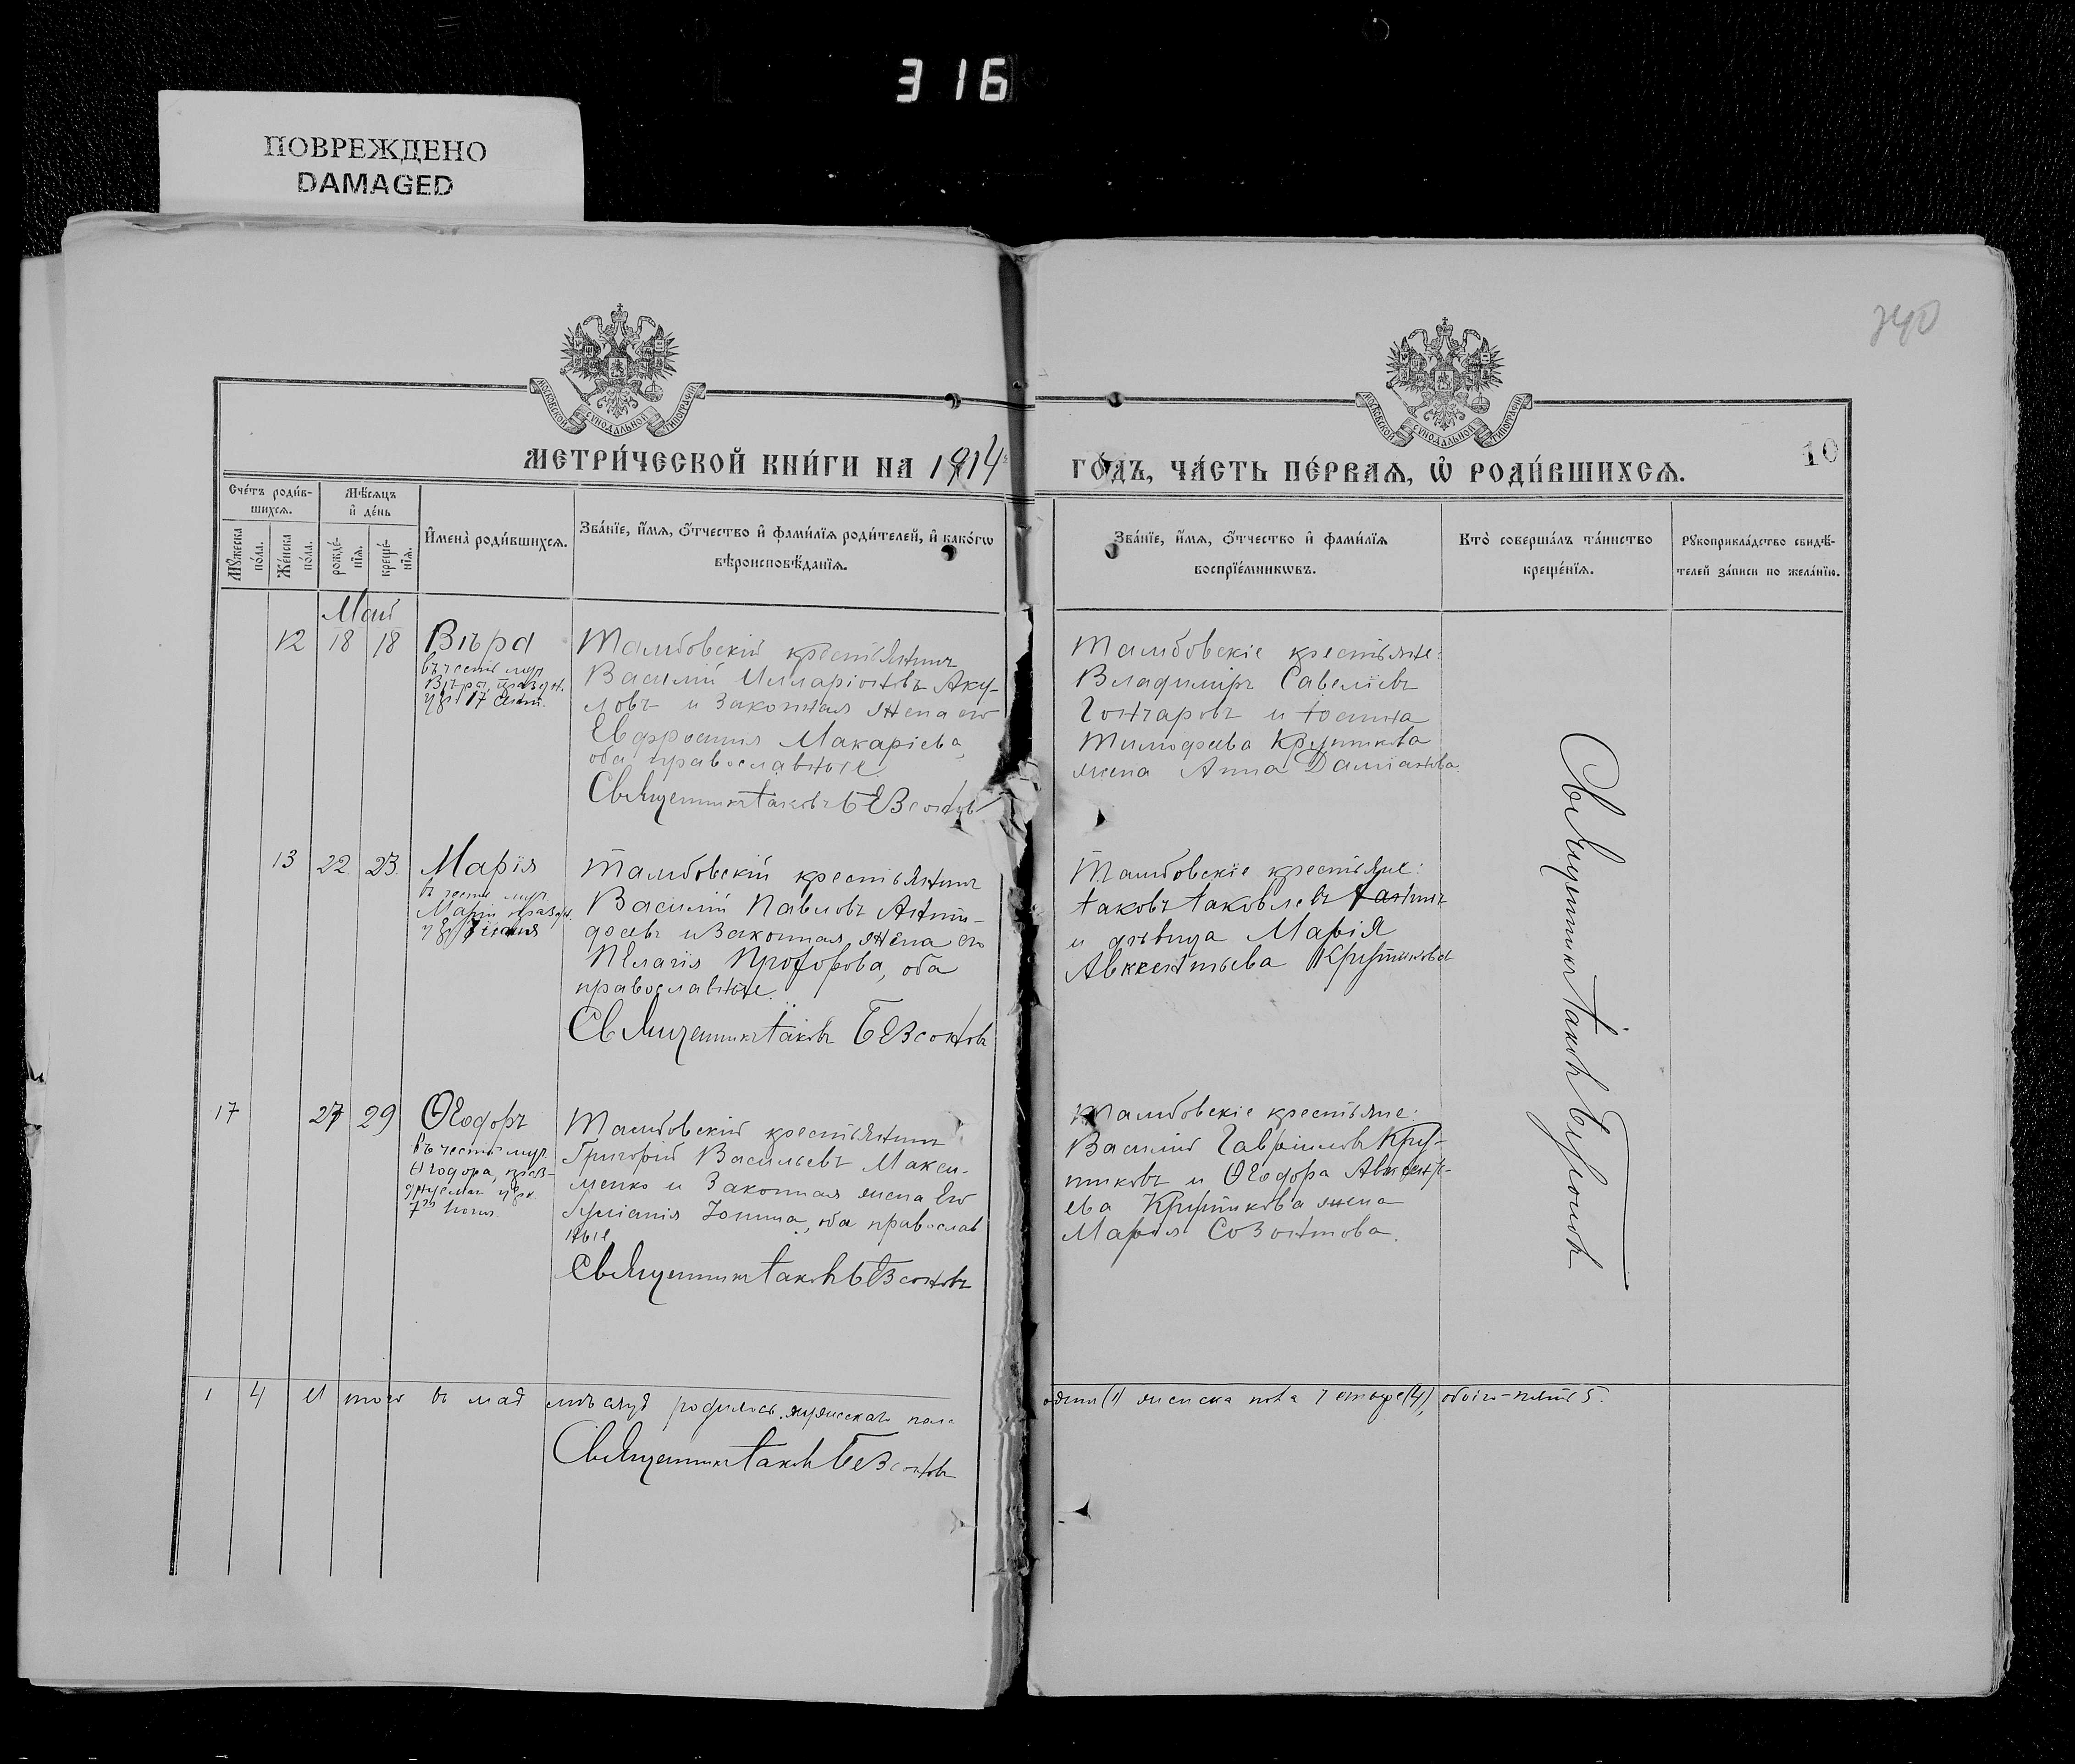 316
ПОВРЕЖДЕНО
DAMAGED
240
МОСКОВСКОЙ СѴНОДАЛЬНОЙ ТИПОГРАФІИ
МОСКОВСКОЙ СѴНОДАЛЬНОЙ ТИПОГРАФІИ
10
МЕТРИ́ЧЕСКОЙ КНИ́ГИ НА 1914
ГО́ДЪ, ЧА́СТЬ ПЕ́РВАѦ, Ѽ РОДИ́ВШИХСѦ.
Сче́тъ роди́в-
шихсѧ.
Мѣ́сѧцъ
и҆ де́нь
Мꙋ́жеска
по́ла.
Же́нска
по́ла.
рожде́-
нїѧ.
креще́-
нїѧ.
И҆мена̀ роди́вшихсѧ.
Зва́нїе, и҆́мѧ, ѻ҆́тчество и҆ фами́лїѧ роди́телей, и҆ како́гѡ
вѣроисповѣ́данїѧ.
Зва́нїе, и҆́мѧ, ѻ҆́тчество и҆ фами́лїѧ
воспрїе́мникѡвъ.
Кто̀ соверша́лъ та́инство
креще́нїѧ.
Рꙋкоприкла́дство свидѣ́-
телей за́писи по жела́нїю.
Май
12 18 18 Вѣра
въ честь муч.
Вѣры, праздн.
17 Сент.
Тамбовскій крестьянинъ
Василій Илларіоновъ Аку-
ловъ и законная жена его
Евфросинія Макаріева,
оба православные.
Священникъ Іаковъ Безсоновъ
Тамбовскіе крестьяне:
Владиміръ Савеліевъ
Гончаровъ и Іоанна
Тимофеева Крутикова
жена Анна Даміанова.
13 22 23 Марія
въ честь муч.
Маріи празд.
Тамбовскій крестьянинъ
Василій Павловъ Анти-
феевъ и законная жена его
Пелагія Прохорова, оба
православные.
Священникъ Іаковъ Безсоновъ
Тамбовскіе крестьяне:
Іаковъ Іаковлевъ
и дѣвица Марія
Авксентьева Крутикова
17 27 29 Ѳеодоръ
въ честь муч.
Ѳеодора, праз-
днуемаго
7го
Тамбовскій крестьянинъ
Григорій Васильевъ Макси-
менко и законная жена его
Іуліанія Іонина, оба православ
ные
Священникъ Іаковъ Безсоновъ
Тамбовскіе крестьяне:
Василій Гавріиловъ Кру-
тиковъ и Ѳеодора Авксенть-
ева Крутикова жена
Марія Созонтова.
Священникъ Іаковъ Безсоновъ
1 4 Итого въ маѣ мѣсяцѣ родилось мужескаго пола
одинъ (1) женска пола четыре (4), обоего-пять 5.
Священникъ Іаковъ Безсоновъ